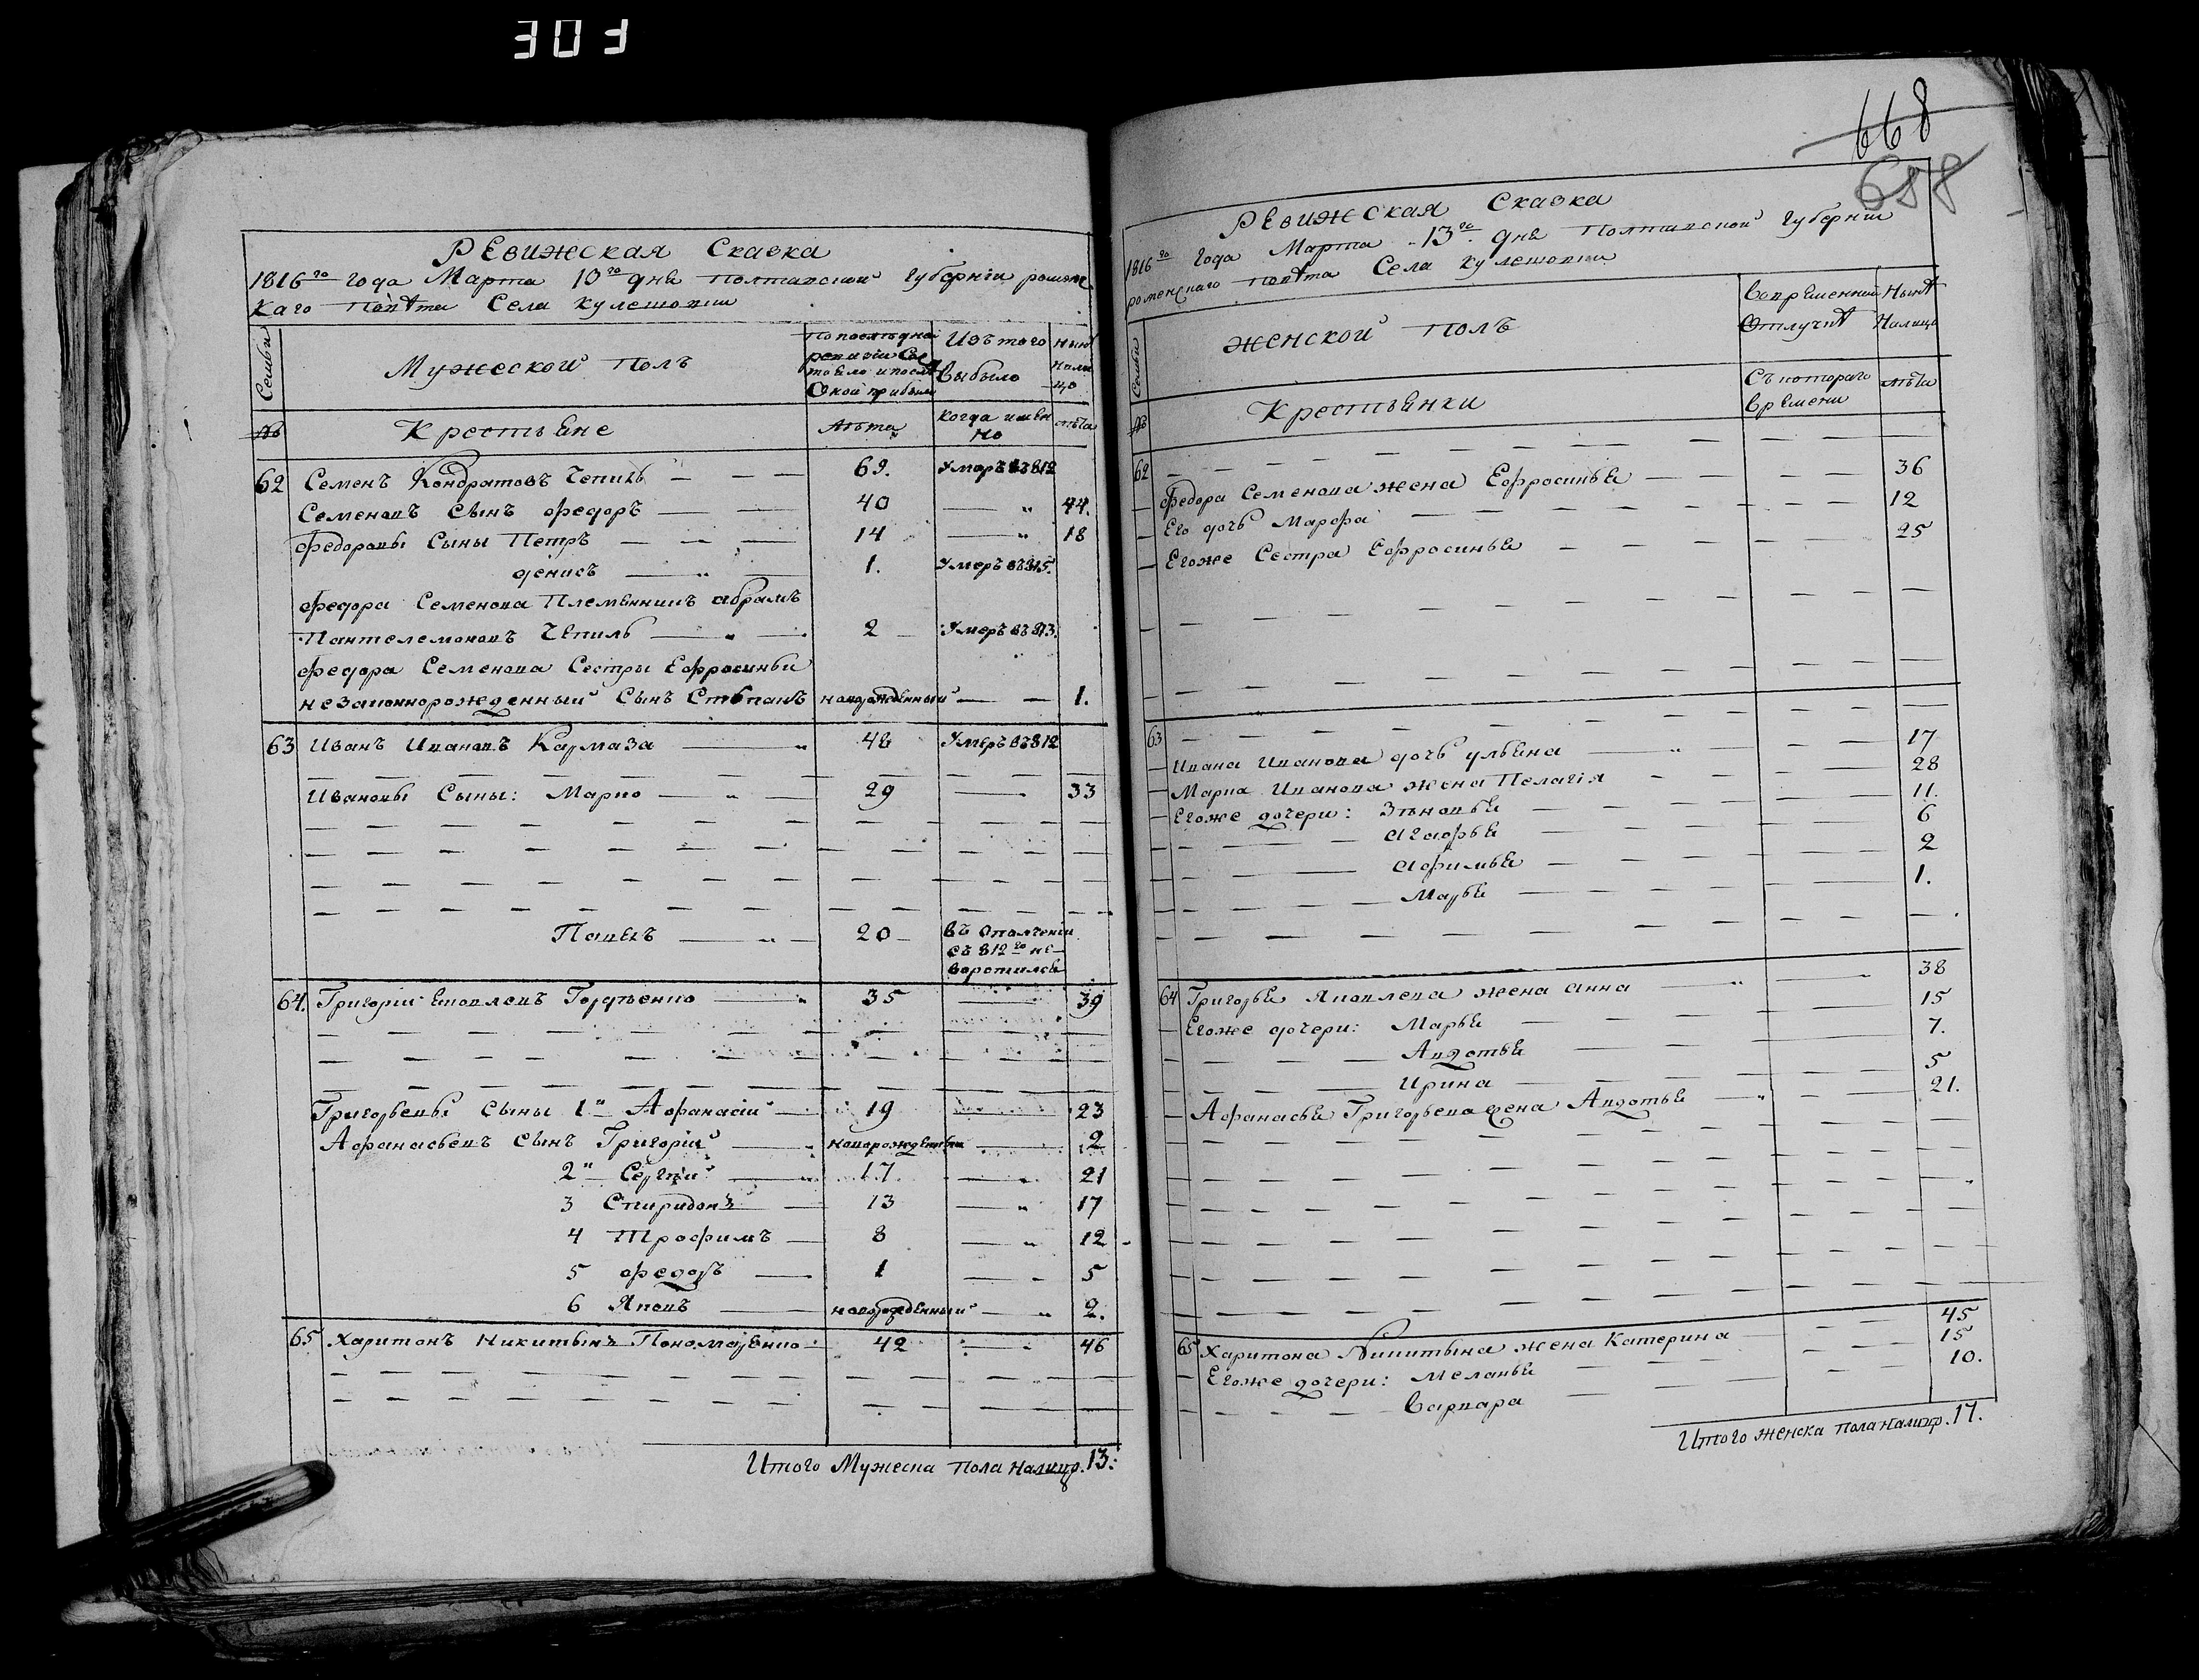 668
658
Ревижская Сказка
1816го года Марта 10го дня полтавской Губернии роменс
каго повѣта Села кулешовки
Семьи
Мужеской полъ
По послѣдней ревизіи Состояло и послѣ Оной прибыло
Изъ того Выбыло
нынѣ налицо
№
Крестьяне
Лѣта
когда имен но
лѣта
62 Семенъ Кондратовъ Чепиль 69. Умеръ въ 812
Семеновъ Сынъ федоръ 40 " 44.
федоровы Сыны Петръ 14 " 18
денисъ 1. Умеръ въ 815.
федора Семенова Племянникъ абрамъ
Пантелемоновъ Чепиль 2 Умеръ въ 813.
федора Семенова Сестры Ефросиньи
незаконнорожденный Сынъ Стѣпанъ новорожденный 1.
63 Иванъ Ивановъ Кармаза 48 Умеръ въ 812
Ивановы Сыны: Марко 29 33
Павелъ 20 въ Ополченіи
съ 812го не-
воротился
64. Григорій Яковлевъ Гордѣенко 35 39
Григорьевы сыны 1й Афанасій 19 23
Афанасьевъ сынъ Григорій новорожденный 2
2й Сергѣй 17 21
3 Спиридонъ 13 17
4 Трофимъ 8 12
5 федоръ 1 5
6 Яковъ новорожденный 2.
65 Харитонъ Никитынъ Пономаренко 42 46
Итого Мужеска пола Налицо. 13:
Ревижская Сказка
1816го года Марта 13го дня Полтавской Губерніи
роменскаго повѣта Села кулешовки
Семьи
женской полъ
Вовременной Отлучкѣ
Нынѣ Налицо
№
Крестьянки
Съ котораго времени
лѣта
62
федора Семенова жена Ефросинья 36
Его дочь Марфа 12
Егоже Сестра Ефросинья 25
63
Ивана Иванова дочь ульяна 17
Марка Иванова жена Пелагія 28
Егоже дочери: Зѣновья 11.
агафья 6
афимья 2
Марья 1.
64 Григорья Яковлева жена анна 38
Егоже дочери: Марья 15
Авдотья 7.
Ирина 5
Афанасья Григорьева жена Авдотья 21.
65 Харитона Никитына жена Катерина 45
Егоже дочери: меланья 15
Варвара 10.
Итого женска пола Налицо. 17.